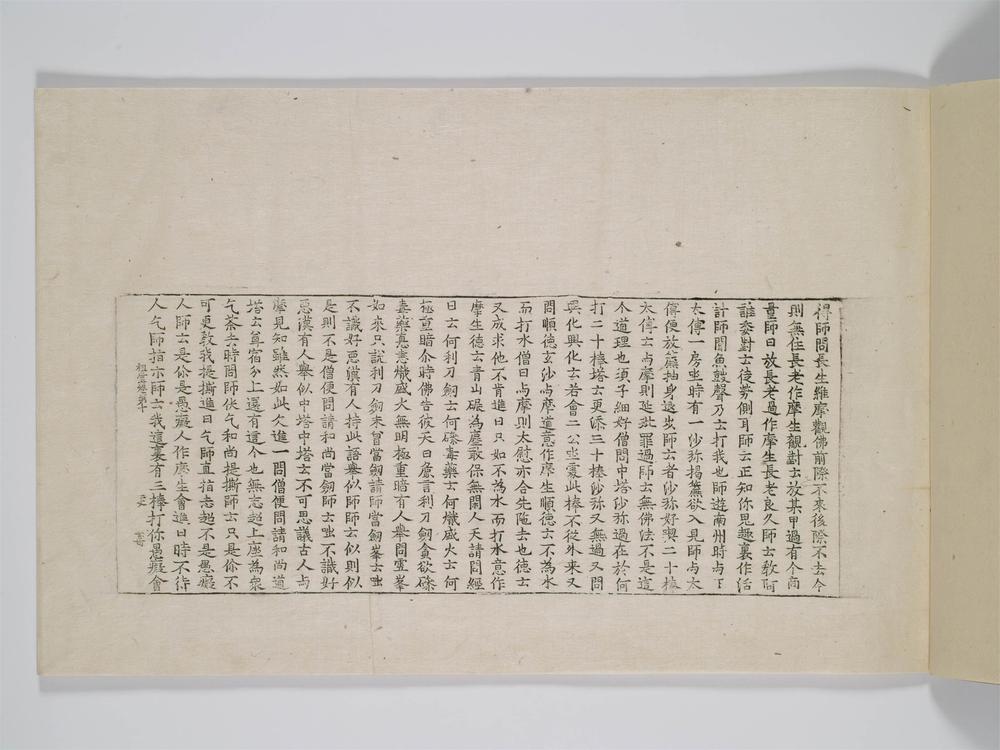 得師問長生維摩觀佛前際不來後際不去今
則無住長老作摩生觀對士放某甲過有个商
量師曰放長老過作摩生長老良久師士教阿
誰委對士徒勞側耳師士正知你見趣裏作活
計師聞魚皷聲乃士打我也師遊南州時与王
太傅一房坐時有一沙弥揭簾欲入見師与太
傅便放簾抽身退步師士者沙弥好喫二十棒
太傅士与摩則延玼罪過師士無佛法不是這
个道理也須子細好僧問中塔沙弥過在於何
打二十棒塔士更添三十棒沙弥又無過又問
興化興化士若會二公坐處此棒不從外來又
問順德玄沙与摩道意作摩生順德士不為水
而打水僧曰与摩則太尉亦合先陁去也德士
又成求他不肯進曰只如不為水而打水意作
摩生德士青山碾為塵敢保無閑人天請問經
曰士何利刀劒士何磣毒藥士何熾盛火士何
極重暗尒時佛告彼天曰麁言利刀劒貪欲磣
毒藥瞋恚熾盛火無明極重暗有人舉問霊峯
如來只說利刀劒未曾當劒請師當劒峯士咄
不識好惡漢有人持此語舉似師師士似則似
是則不是僧便問請和尚當劒師士咄不識好
惡漢有人舉似中塔中塔士不可思議古人与
摩見知雖然如此欠進一問僧便問請和尚道
塔士尊宿分上還有這个也無志超上座為衆
乞茶去時問師伏乞和尚提撕師士只是你不
可更教我提撕進曰乞師直指志超不是愚癡
人師士是你是愚癡人作摩生會進曰時不待
人乞師指示師士我這裏有三棒打你愚癡會
祖堂集卷第十